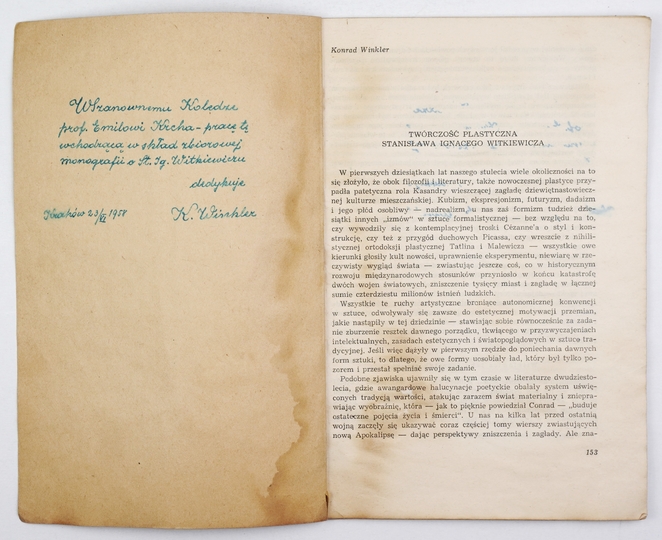 WSzanownemu Koledze
prof. Emilowi Krcha - pracę tę
wchodzącą w skład zbiorowej
monografii o St. Ig. Witkiewiczu
dedykuje
Kraków 23/VI 1958 K. Winkler
Konrad Winkler
TWÓRCZOŚĆ PLASTYCZNA
STANISŁAWA IGNACEGO WITKIEWICZA
W pierwszych dziesiątkach lat naszego stulecia wiele okoliczności na to
się złożyło, że obok filozofii i literatury, także nowoczesnej plastyce przy-
padła patetyczna rola Kasandry wieszczącej zagładę dziewiętnastowiecz-
nej kulturze mieszczańskiej. Kubizm, ekspresjonizm, futuryzm, dadaizm
i jego płód osobliwy — nadrealizm, u nas zaś formizm tudzież dzie-
siątki innych „izmów” w sztuce formalistycznej — bez względu na to,
czy wywodziły się z kontemplacyjnej troski Cézanne'a o styl i kon-
strukcję, czy też z przygód duchowych Picassa, czy wreszcie z nihili-
stycznej ortodoksji plastycznej Tatlina i Malewicza — wszystkie owe
kierunki głosiły kult nowości, uprawnienie eksperymentu, niewiarę w rze-
czywisty wygląd świata — zwiastując jeszcze coś, co w historycznym
rozwoju międzynarodowych stosunków przyniosło w końcu katastrofę
dwóch wojen światowych, zniszczenie tysięcy miast i zagładę w łącznej
sumie czterdziestu milionów istnień ludzkich.
Wszystkie te ruchy artystyczne broniące autonomicznej konwencji
w sztuce, odwoływały się zawsze do estetycznej motywacji przemian,
jakie nastąpiły w tej dziedzinie — stawiając sobie równocześnie za zada-
nie zburzenie resztek dawnego porządku, tkwiącego w przyzwyczajeniach
intelektualnych, zasadach estetycznych i światopoglądowych w sztuce tra-
dycyjnej. Jeśli więc dążyły w pierwszym rzędzie do poniechania dawnych
form sztuki, to dlatego, że owe formy uosabiały ład, który był tylko po-
zorem i przestał spełniać swoje zadanie.
Podobne zjawiska ujawniły się w tym czasie w literaturze dwudziesto-
lecia, gdzie awangardowe halucynacje poetyckie obalały system uświę-
conych tradycją wartości, atakując zarazem świat materialny i zniepra-
wiając wyobraźnię, która — jak to pięknie powiedział Conrad — „buduje
ostateczne pojęcia życia i śmierci”. U nas na kilka lat przed ostatnią
wojną zaczęły się ukazywać coraz częściej tomy wierszy zwiastujących
nową Apokalipsę — dając perspektywy zniszczenia i zagłady. Ale zna-
153